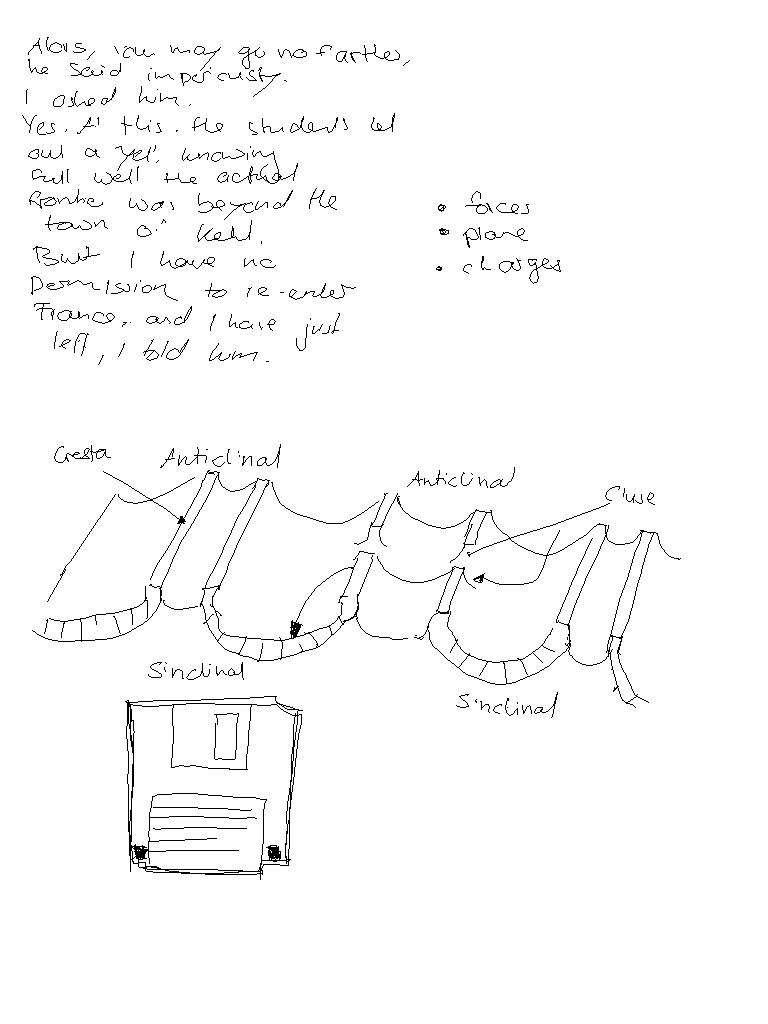 Alors, you may go no farther,
he said imperiously.
I asked him.
Yes. At this. the students let
out a yell, knowing
full well the actual
frontier was beyond the
town of Kehl.
But I have no
permission to re-enter
France, and I have just
left, I told him.
• faces
• plane
• charges
Cresta
Anticlinal
Anticlinal
Cluse
Sinclinal
Sinclinal